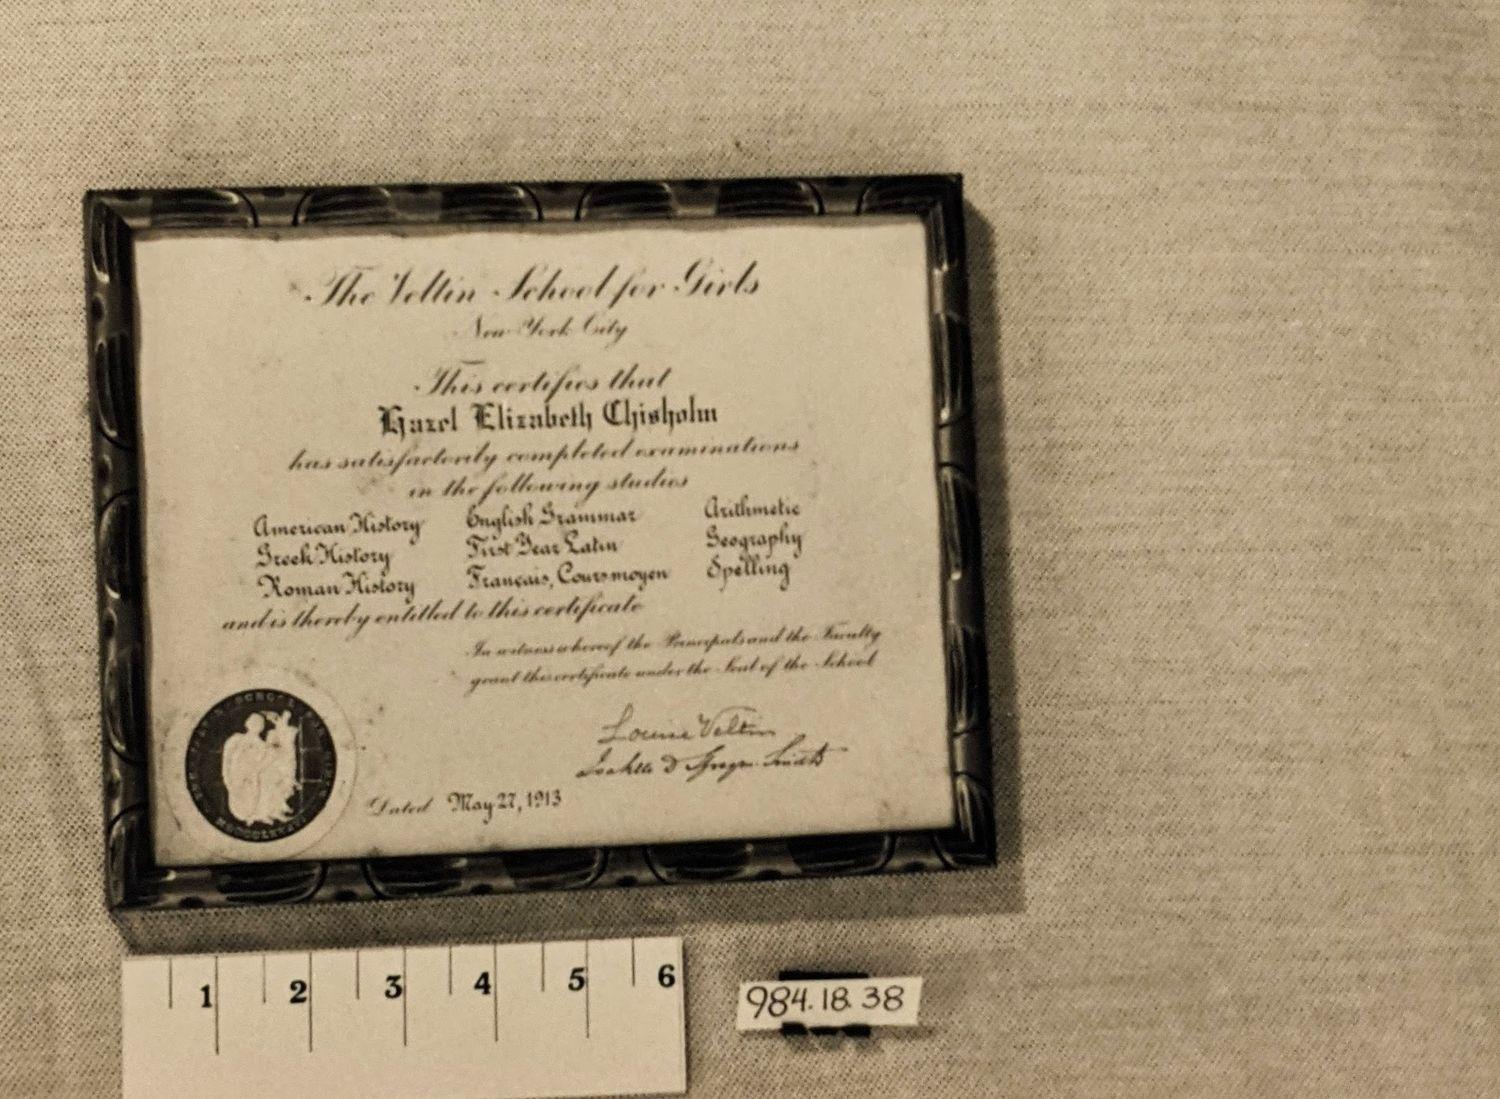 The Veltin School for Girls
New York City
This certifies that
Hazel Elizabeth Chisholm
has satisfactorily completed examinations
in the following studies
American History English Grammar Arithmetic
Greek History First Year Latin Geography
Roman History Français, Cours moyen Spelling
and is thereby entitled to this certificate
In witness whereof the Principals and the Faculty
grant this certificate under the Seal of the School
Louise Veltin
Dated May 27, 1913
1 2 3 4 5 6
984.18.38